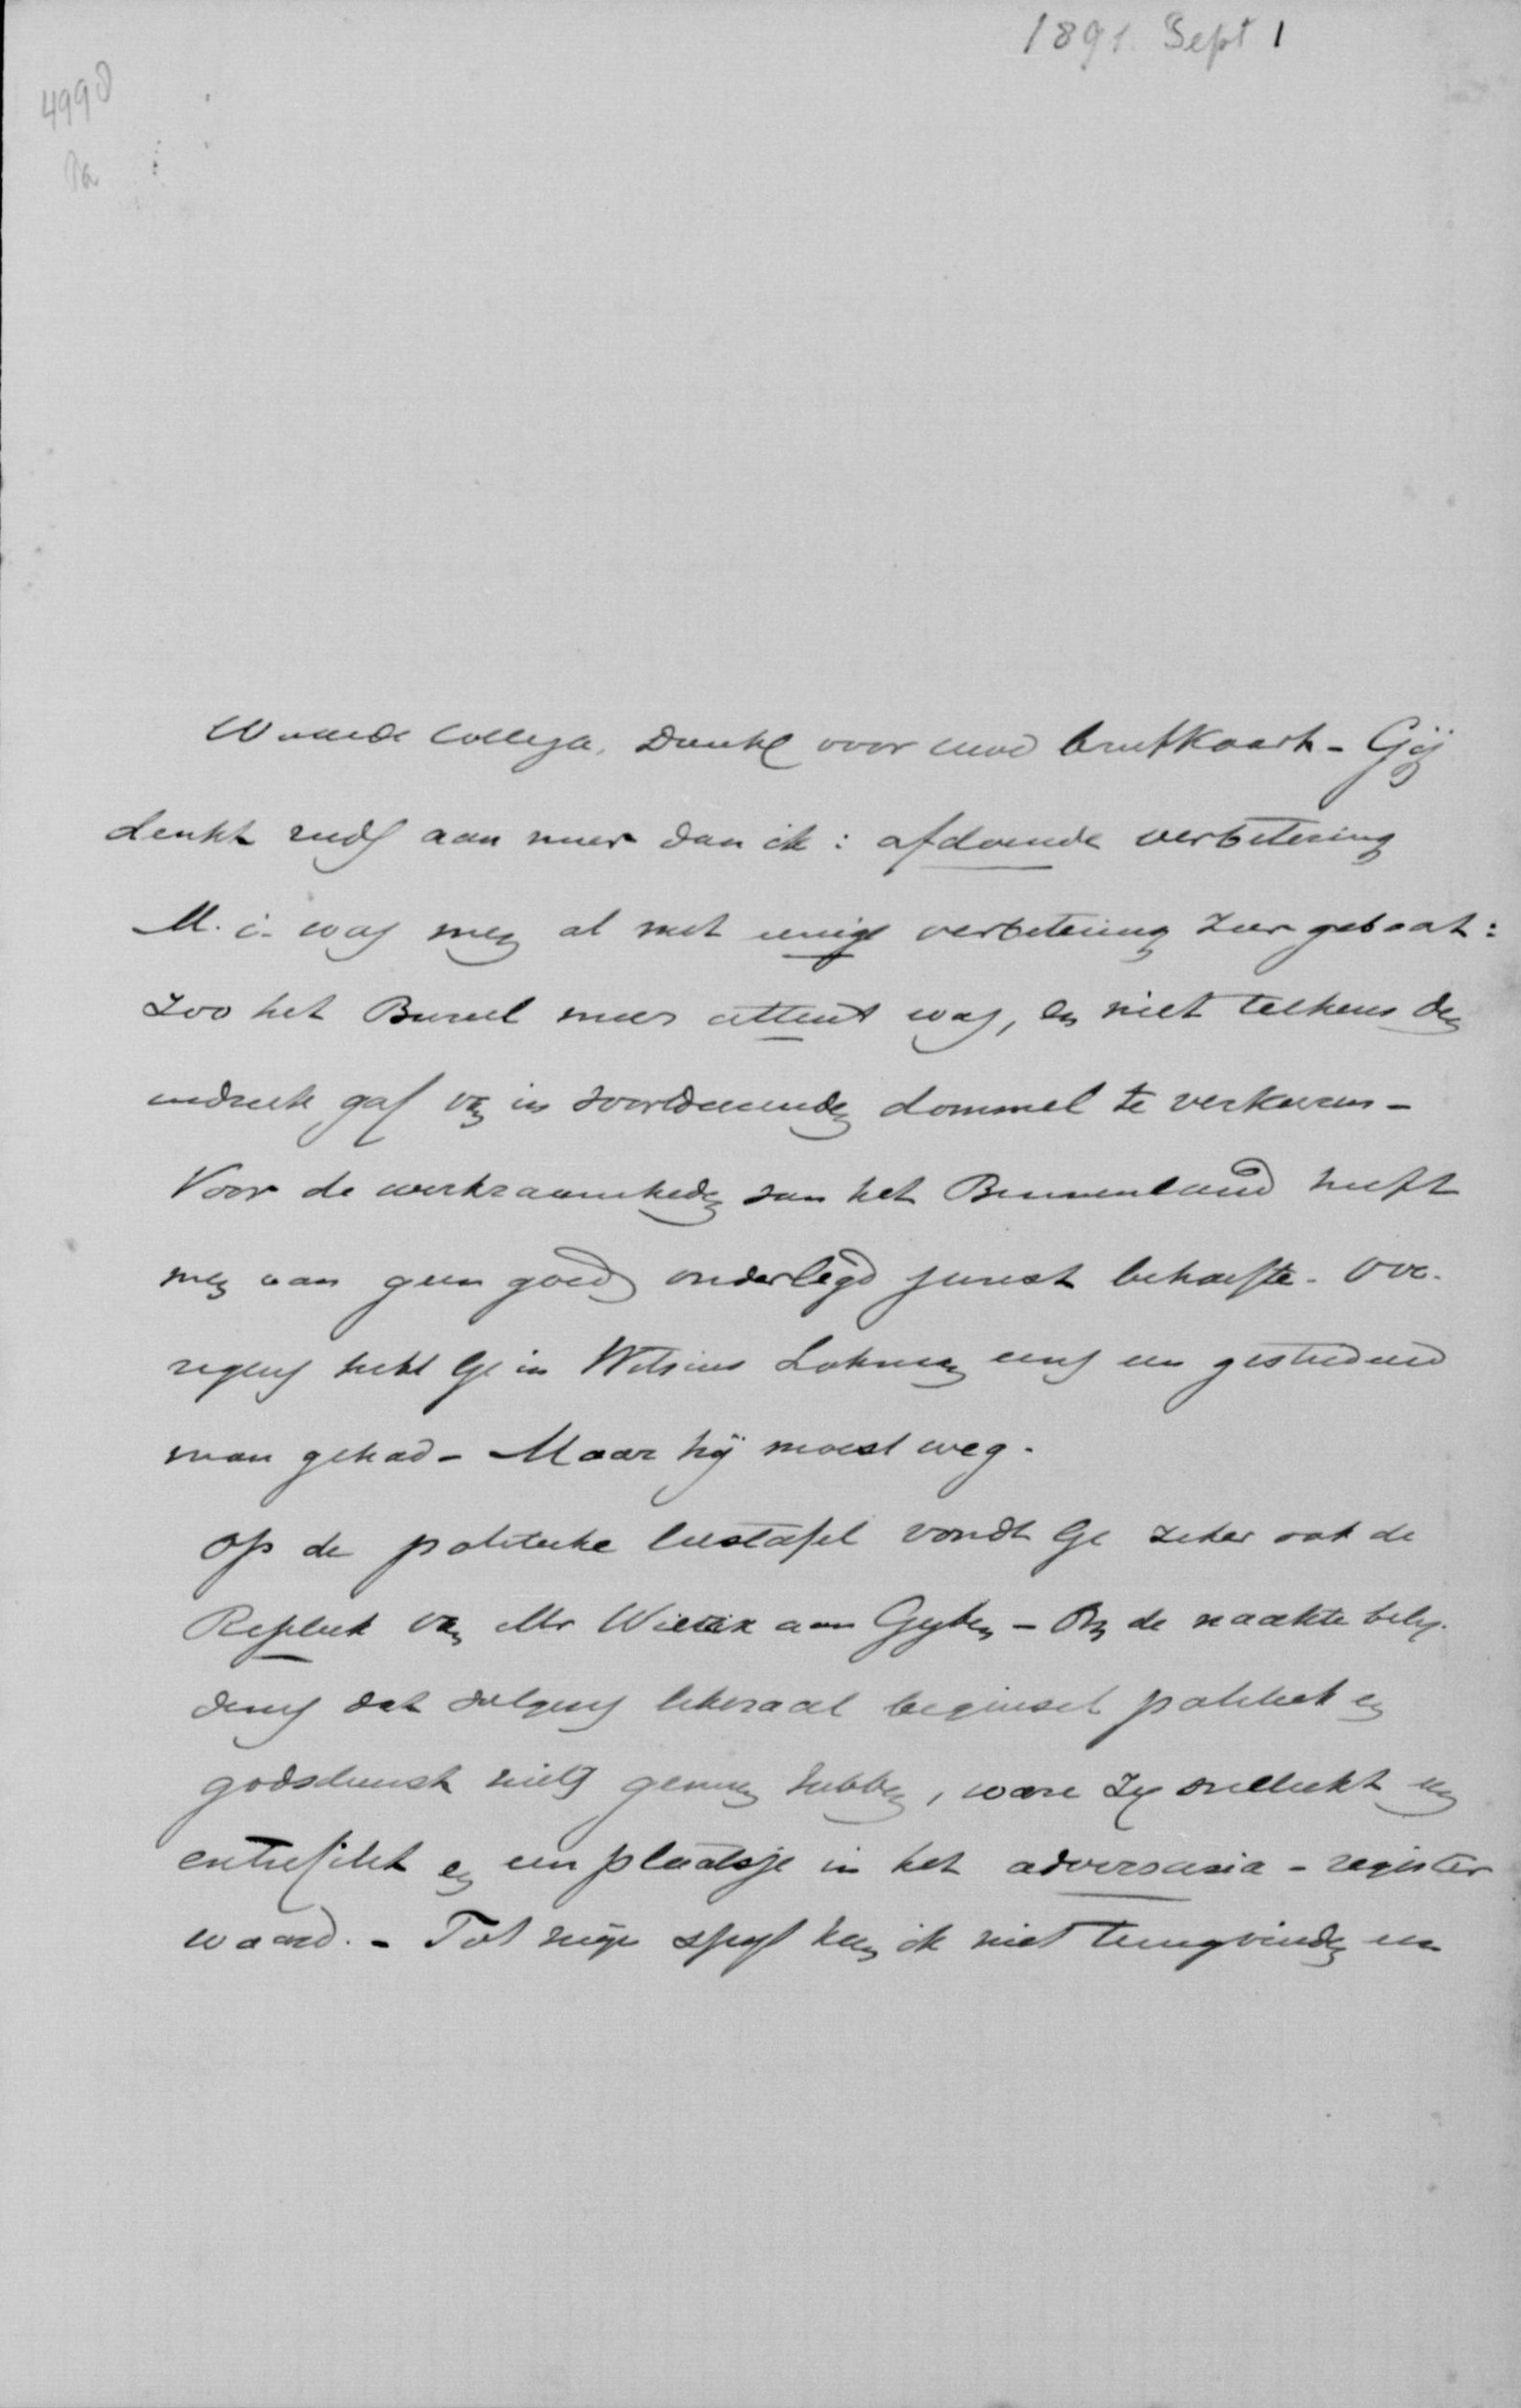 1891. Sept 1
4998
Waarde Collega, Dankt voor uwe briefkaart - Gij
denkt reeds aan meer dan ik: afdoende verbetering
M. i. was men al met eenige verbetering zeer gebaat:
Zoo het Bureel meer attent was, en niet telkens den
indruk gaf van in voortdurenden dommel te verkeeren -
Voor de werkzaamheden van het Binnenland heeft
men aan geen goed onderlegd jurist behoefte. Ove-
rigens hebt Ge in Witsius Lohman eens een gestudeerd
man gehad - Maar hij moest weg.
Op de politieke leestafel vondt Ge zeker ook de
Repliek van Mr Wierix aan Gijben - En de naakte belij-
denis dat volgens liberaal beginsel politiek en
godsdienst niets gemeen hebben, ware zij wellicht een
entrefilet en een plaatsje in het adversaria-register
waard. - Tot mijn spijt kan ik niet terugvinden een